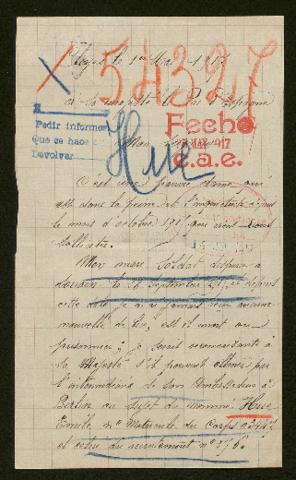 le 1er Mai 1917
54397
X
à sa majesté le Roi d'Espagne
Pedir informes
Que se hace
Devolver
Fecho
MAY. 17
e.a.e.
Hue
C'est une pauvre dame qui
est dans la peine et l'inquiétude depuis
le mois d'octobre 191 qui vient vous
solliciter.
Mon mari Soldat disparu à
le 26 Septembre 191 et depuis
cette date je n'ai jamais reçu aucune
nouvelle de lui, est il mort ou
prisonnier; je serait reconnaissante à
sa Majesté s'il pouvait obtenir par
l'intermédiaire de son Ambassadeur à
Berlin au sujet du nommé Hue
Emile nº Matricule du Corps
et celui du recrutement nº 376.